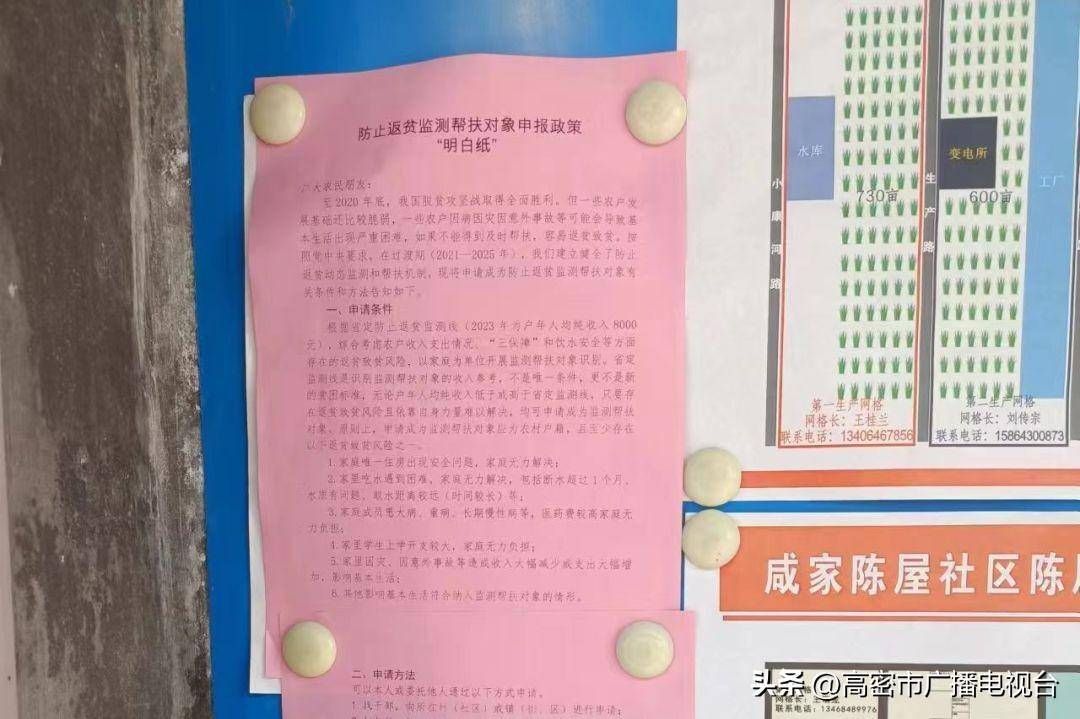 防止返贫监测帮扶对象申报政策
“明白纸”
广大农民朋友：
至2020年底，我国脱贫攻坚战取得全面胜利。但一些农户发
展基础还比较脆弱，一些农户因病因灾因意外事故等可能会导致基
本生活出现严重困难，如果不能得到及时帮扶，容易返贫致贫。按
照党中央要求，在过渡期（2021—2025年），我们建立健全了防止
返贫动态监测和帮扶机制。现将申请成为防止返贫监测帮扶对象有
关条件和方法告知如下。
一、申请条件
根据省定防止返贫监测线（2023年为户年人均纯收入8000
元），综合考虑农户收入支出情况、“三保障”和饮水安全等方面
存在的返贫致贫风险，以家庭为单位开展监测帮扶对象识别。省定
监测线是识别监测帮扶对象的收入参考，不是唯一条件，更不是新
的贫困标准，无论户年人均纯收入低于或高于省定监测线，只要存
在返贫致贫风险且依靠自身力量难以解决，均可申请成为监测帮扶
对象。原则上，申请成为监测帮扶对象应为农村户籍，且至少存在
以下返贫致贫风险之一。
1.家庭唯一住房出现安全问题，家庭无力解决；
2.家里吃水遇到困难，家庭无力解决，包括断水超过1个月、
水质有问题、取水距离较远（时间较长）等；
3.家庭成员患大病、重病、长期慢性病等，医药费较高家庭无
力负担；
4.家里学生上学开支较大，家庭无力负担；
5.家里因灾、因意外事故等造成收入大幅减少或支出大幅增
加，影响基本生活；
6.其他影响基本生活符合纳入监测帮扶对象的情形。
二、申请方法
可以本人或委托他人通过以下方式申请。
1.找干部，向所在村（社区）或镇（街、区）进行申请；
小康河路
水库
730亩
生产路
变电所
600亩
工厂
第一生产网格
网格长：王桂兰
联系电话：13406467856
第二生产网格
网格长：刘传宗
联系电话：15864300873
咸家陈屋社区陈
联系电话：13468489976
头条 @高密市广播电视台